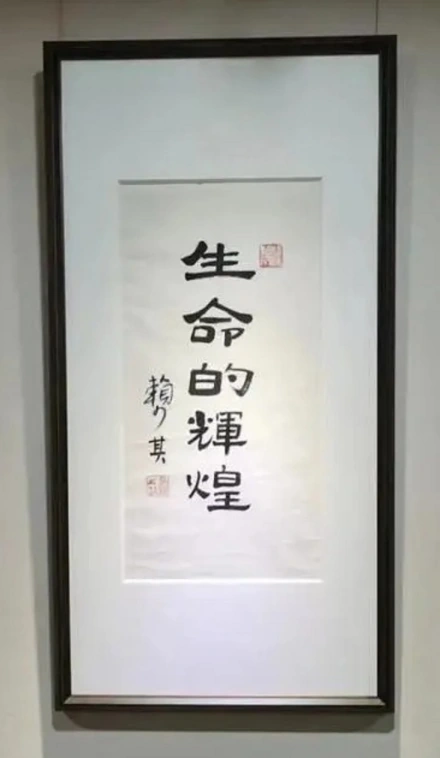 生命的輝煌
賴少其